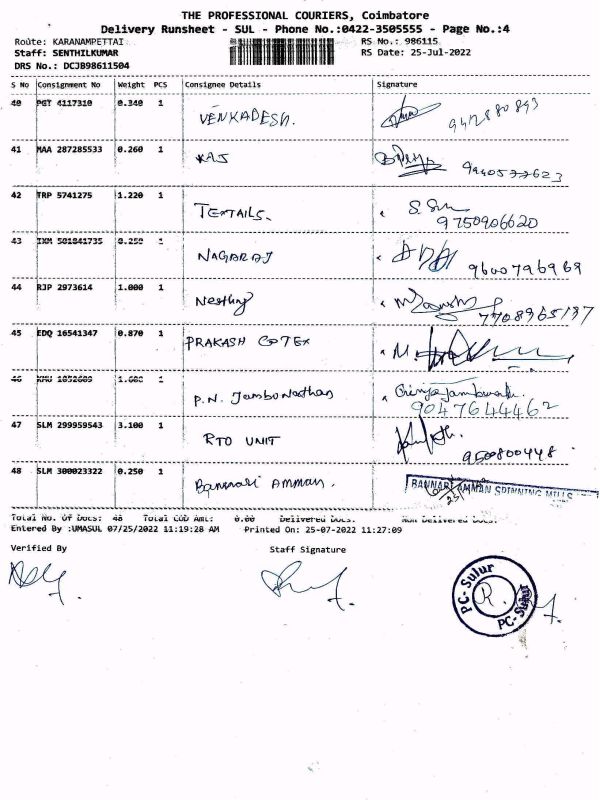 THE PROFESSIONAL COURIERS, Coimbatore
Delivery Runsheet - SUL - Phone No.:0422-3505555 - Page No.:4
Route: KARANAMPETTAI RS No.: 986115
Staff: SENTHILKUMAR RS Date: 25-Jul-2022
DRS No.: DCJB98611504
S No Consignment No Weight PCS Consignee Details Signature
40 PGT 4117310 0.340 1 VENKADESH.
41 MAA 287285533 0.260 1
42 TRP 5741275 1.220 1 9750906620
43 IXM 501841735 0.250 1 NAGARAJ 9600796969
44 RJP 2973614 1.000 1 7708965137
45 EDQ 16541347 0.870 1 PRAKASH COTEX
46 1.680 1 P.N. Jambonathan 9047644462
47 SLM 299959543 3.100 1 RTO UNIT 950800448
48 SLM 300023322 0.250 1 Bannari Amman. BANNARI AMMAN SPINNING MILLS
Total No. Of Docs: 48 Total COD Amt: 0.00 Delivered Docs. Non Delivered Docs.
Entered By :UMASUL 07/25/2022 11:19:28 AM Printed On: 25-07-2022 11:27:09
Verified By Staff Signature
PC-Sulur
R.
PC-Sulur